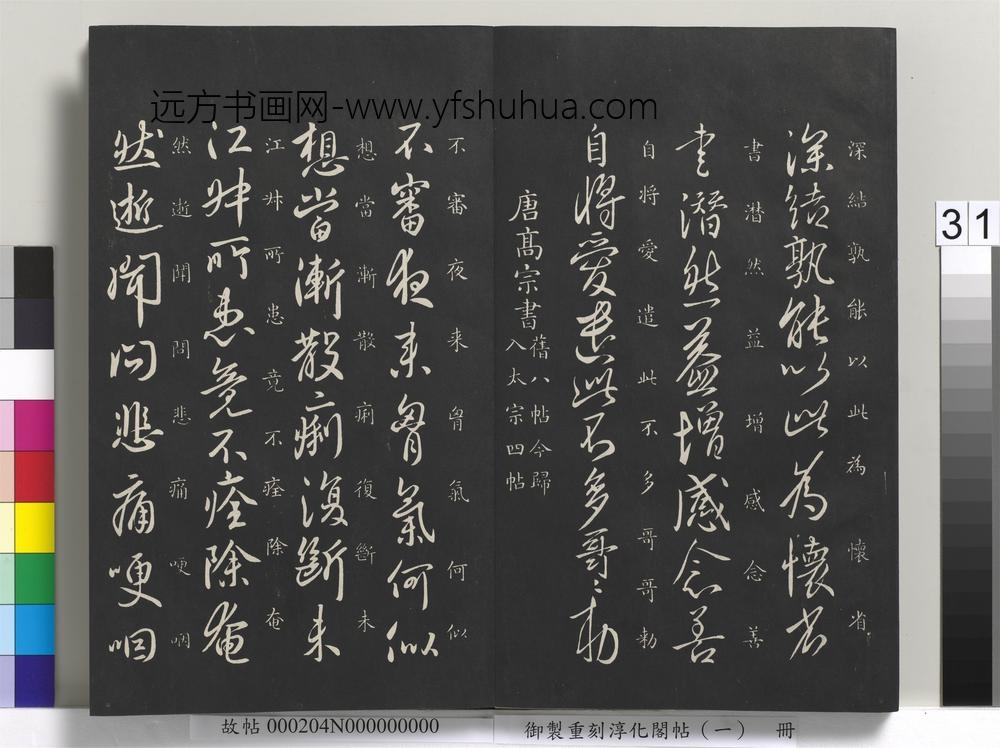 远方书画网-www.yfshuhua.com
深結孰能以此為懷省
深結孰能以此為懷省
書潛然益增感念善
書潛然益增感念善
自将愛遣此不多哥哥勅
自将愛遣此不多哥〻勅
唐髙宗書
舊八帖今歸
入太宗四帖
不審夜来胷氣何似
不審夜来胷氣何似
想當漸散痢復斷未
想當漸散痢復斷未
江叔所患竟不痊除奄
江叔所患竟不痊除奄
然逝聞問悲痛哽咽
然逝聞問悲痛哽咽
31
故帖 000204N000000000
御製重刻淳化閣帖（一） 冊